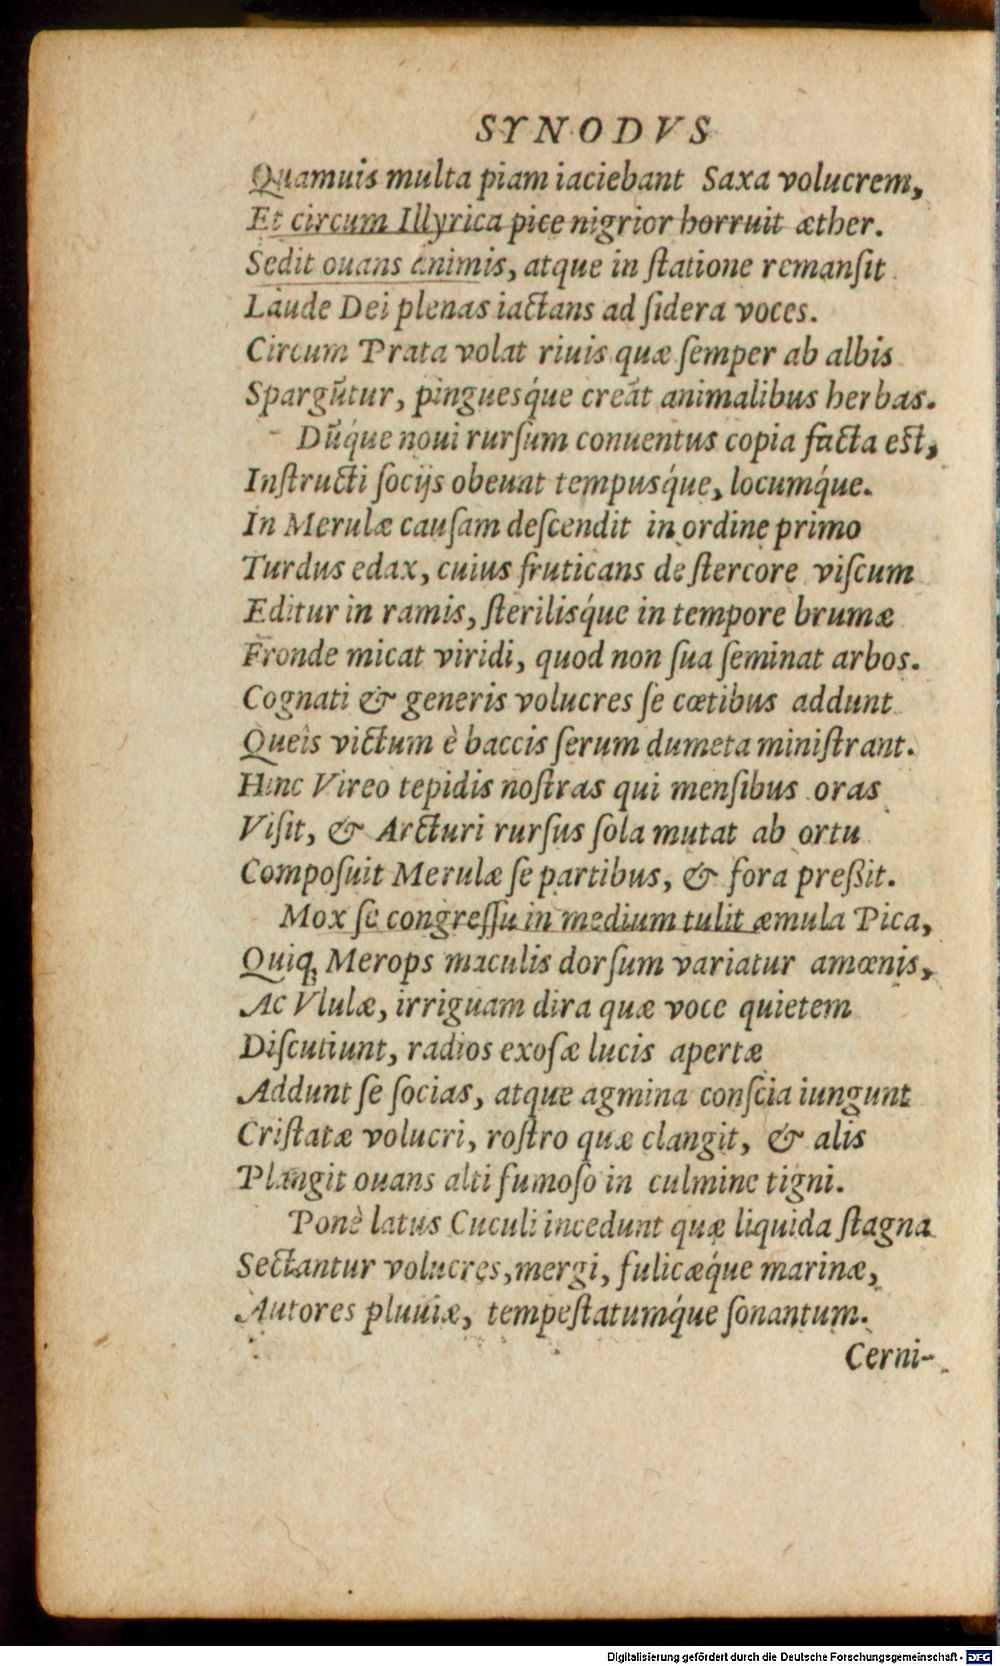 SYNODVS
Quamuis multa piam iaciebant Saxa volucrem,
Et circum Illyrica pice nigrior horruit æther.
Sedit ouans animis, atque in ſtatione remanſit
Laude Dei plenas iactans ad ſidera voces.
Circum Prata volat riuis quæ ſemper ab albis
Spargũtur, pinguesq́ue creãt animalibus herbas.
Dũq́ue noui rurſum conuentus copia facta eſt,
Inſtructi ſocijs obeunt tempusq́ue, locumq́ue.
In Merulæ cauſam deſcendit in ordine primo
Turdus edax, cuius fruticans de ſtercore viſcum
Editur in ramis, ſterilisq́ue in tempore brumæ
Fronde micat viridi, quod non ſua ſeminat arbos.
Cognati & generis volucres ſe cœtibus addunt
Queis victum è baccis ſerum dumeta miniſtrant.
Hinc Vireo tepidis noſtras qui menſibus oras
Viſit, & Arcturi rurſus ſola mutat ab ortu
Compoſuit Merulæ ſe partibus, & fora preßit.
Mox ſe congreſſu in medium tulit æmula Pica,
Quiq́; Merops maculis dorſum variatur amœnis,
Ac Vlulæ, irriguam dira quæ voce quietem
Diſcutiunt, radios exoſæ lucis apertæ
Addunt ſe ſocias, atque agmina conſcia iungunt
Criſtatæ volucri, roſtro quæ clangit, & alis
Plangit ouans alti fumoſo in culmine tigni.
Ponè latus Cuculi incedunt quæ liquida ſtagna
Sectantur volucres, mergi, fulicæq́ue marinæ,
Autores pluuiæ, tempeſtatumq́ue ſonantum.
Cerni-
Digitalisierung gefördert durch die Deutsche Forschungsgemeinschaft - DFG